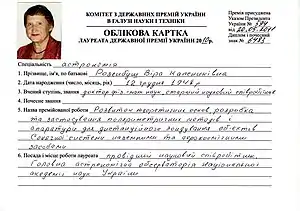 КОМІТЕТ З ДЕРЖАВНИХ ПРЕМІЙ УКРАЇНИ
В ГАЛУЗІ НАУКИ І ТЕХНІКИ
ОБЛІКОВА КАРТКА
ЛАУРЕАТА ДЕРЖАВНОЇ ПРЕМІЇ УКРАЇНИ 2010р.
Премія присуджена
Указом Президента
України №
від 20.05.2011
Диплом і почесний
знак №
Спеціальність астрономія
1. Прізвище, ім'я, по батькові Розенбуш Віра Калениківна
2. Дата народження (число, місяць, рік) 12 грудня
3. Вчений ступінь, звання доктор фіз.-мат. наук, старший науковий співробітник
4. Почесне звання
5. Назва роботи Розвиток теоретичних основ, розробка
та застосування поляриметричних методів і
апаратури для дистанційного зондування об'єктів
Сонячної системи наземними та аерокосмічними
засобами
6. Посада і місце роботи лауреата провідний науковий співробітник,
Головна астрономічна обсерваторія Національної
академії наук України